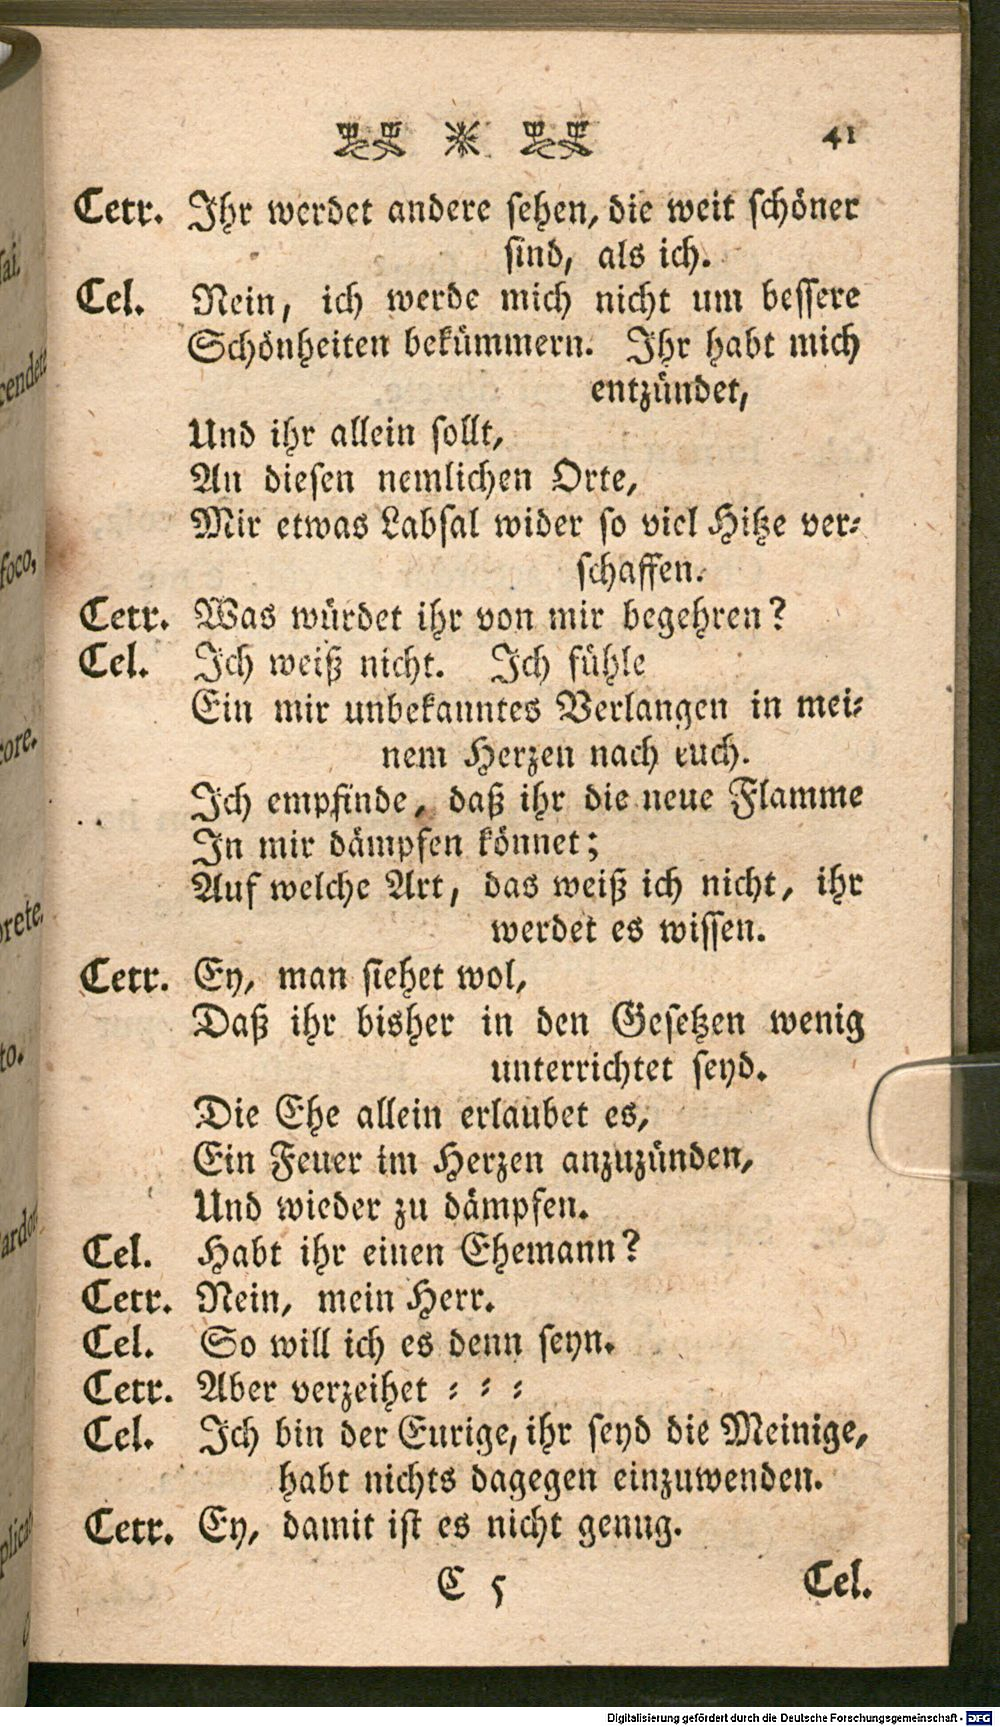 41
Cetr. Ihr werdet andere sehen, die weit schöner
sind, als ich.
Cel. Nein, ich werde mich nicht um bessere
Schönheiten bekümmern. Ihr habt mich
entzündet,
Und ihr allein sollt,
An diesen nemlichen Orte,
Mir etwas Labsal wider so viel Hitze ver⸗
schaffen.
Cetr. Was würdet ihr von mir begehren?
Cel. Ich weiß nicht. Ich fühle
Ein mir unbekanntes Verlangen in mei⸗
nem Herzen nach euch.
Ich empfinde, daß ihr die neue Flamme
In mir dämpfen könnet;
Auf welche Art, das weiß ich nicht, ihr
werdet es wissen.
Cetr. Ey, man siehet wol,
Daß ihr bisher in den Gesetzen wenig
unterrichtet seyd.
Die Ehe allein erlaubet es,
Ein Feuer im Herzen anzuzünden,
Und wieder zu dämpfen.
Cel. Habt ihr einen Ehemann?
Cetr. Nein, mein Herr.
Cel. So will ich es denn seyn.
Cetr. Aber verzeihet ⸗ ⸗ ⸗
Cel. Ich bin der Eurige, ihr seyd die Meinige,
habt nichts dagegen einzuwenden.
Cetr. Ey, damit ist es nicht genug.
C 5 Cel.
foco,
Digitalisierung gefördert durch die Deutsche Forschungsgemeinschaft - DFG